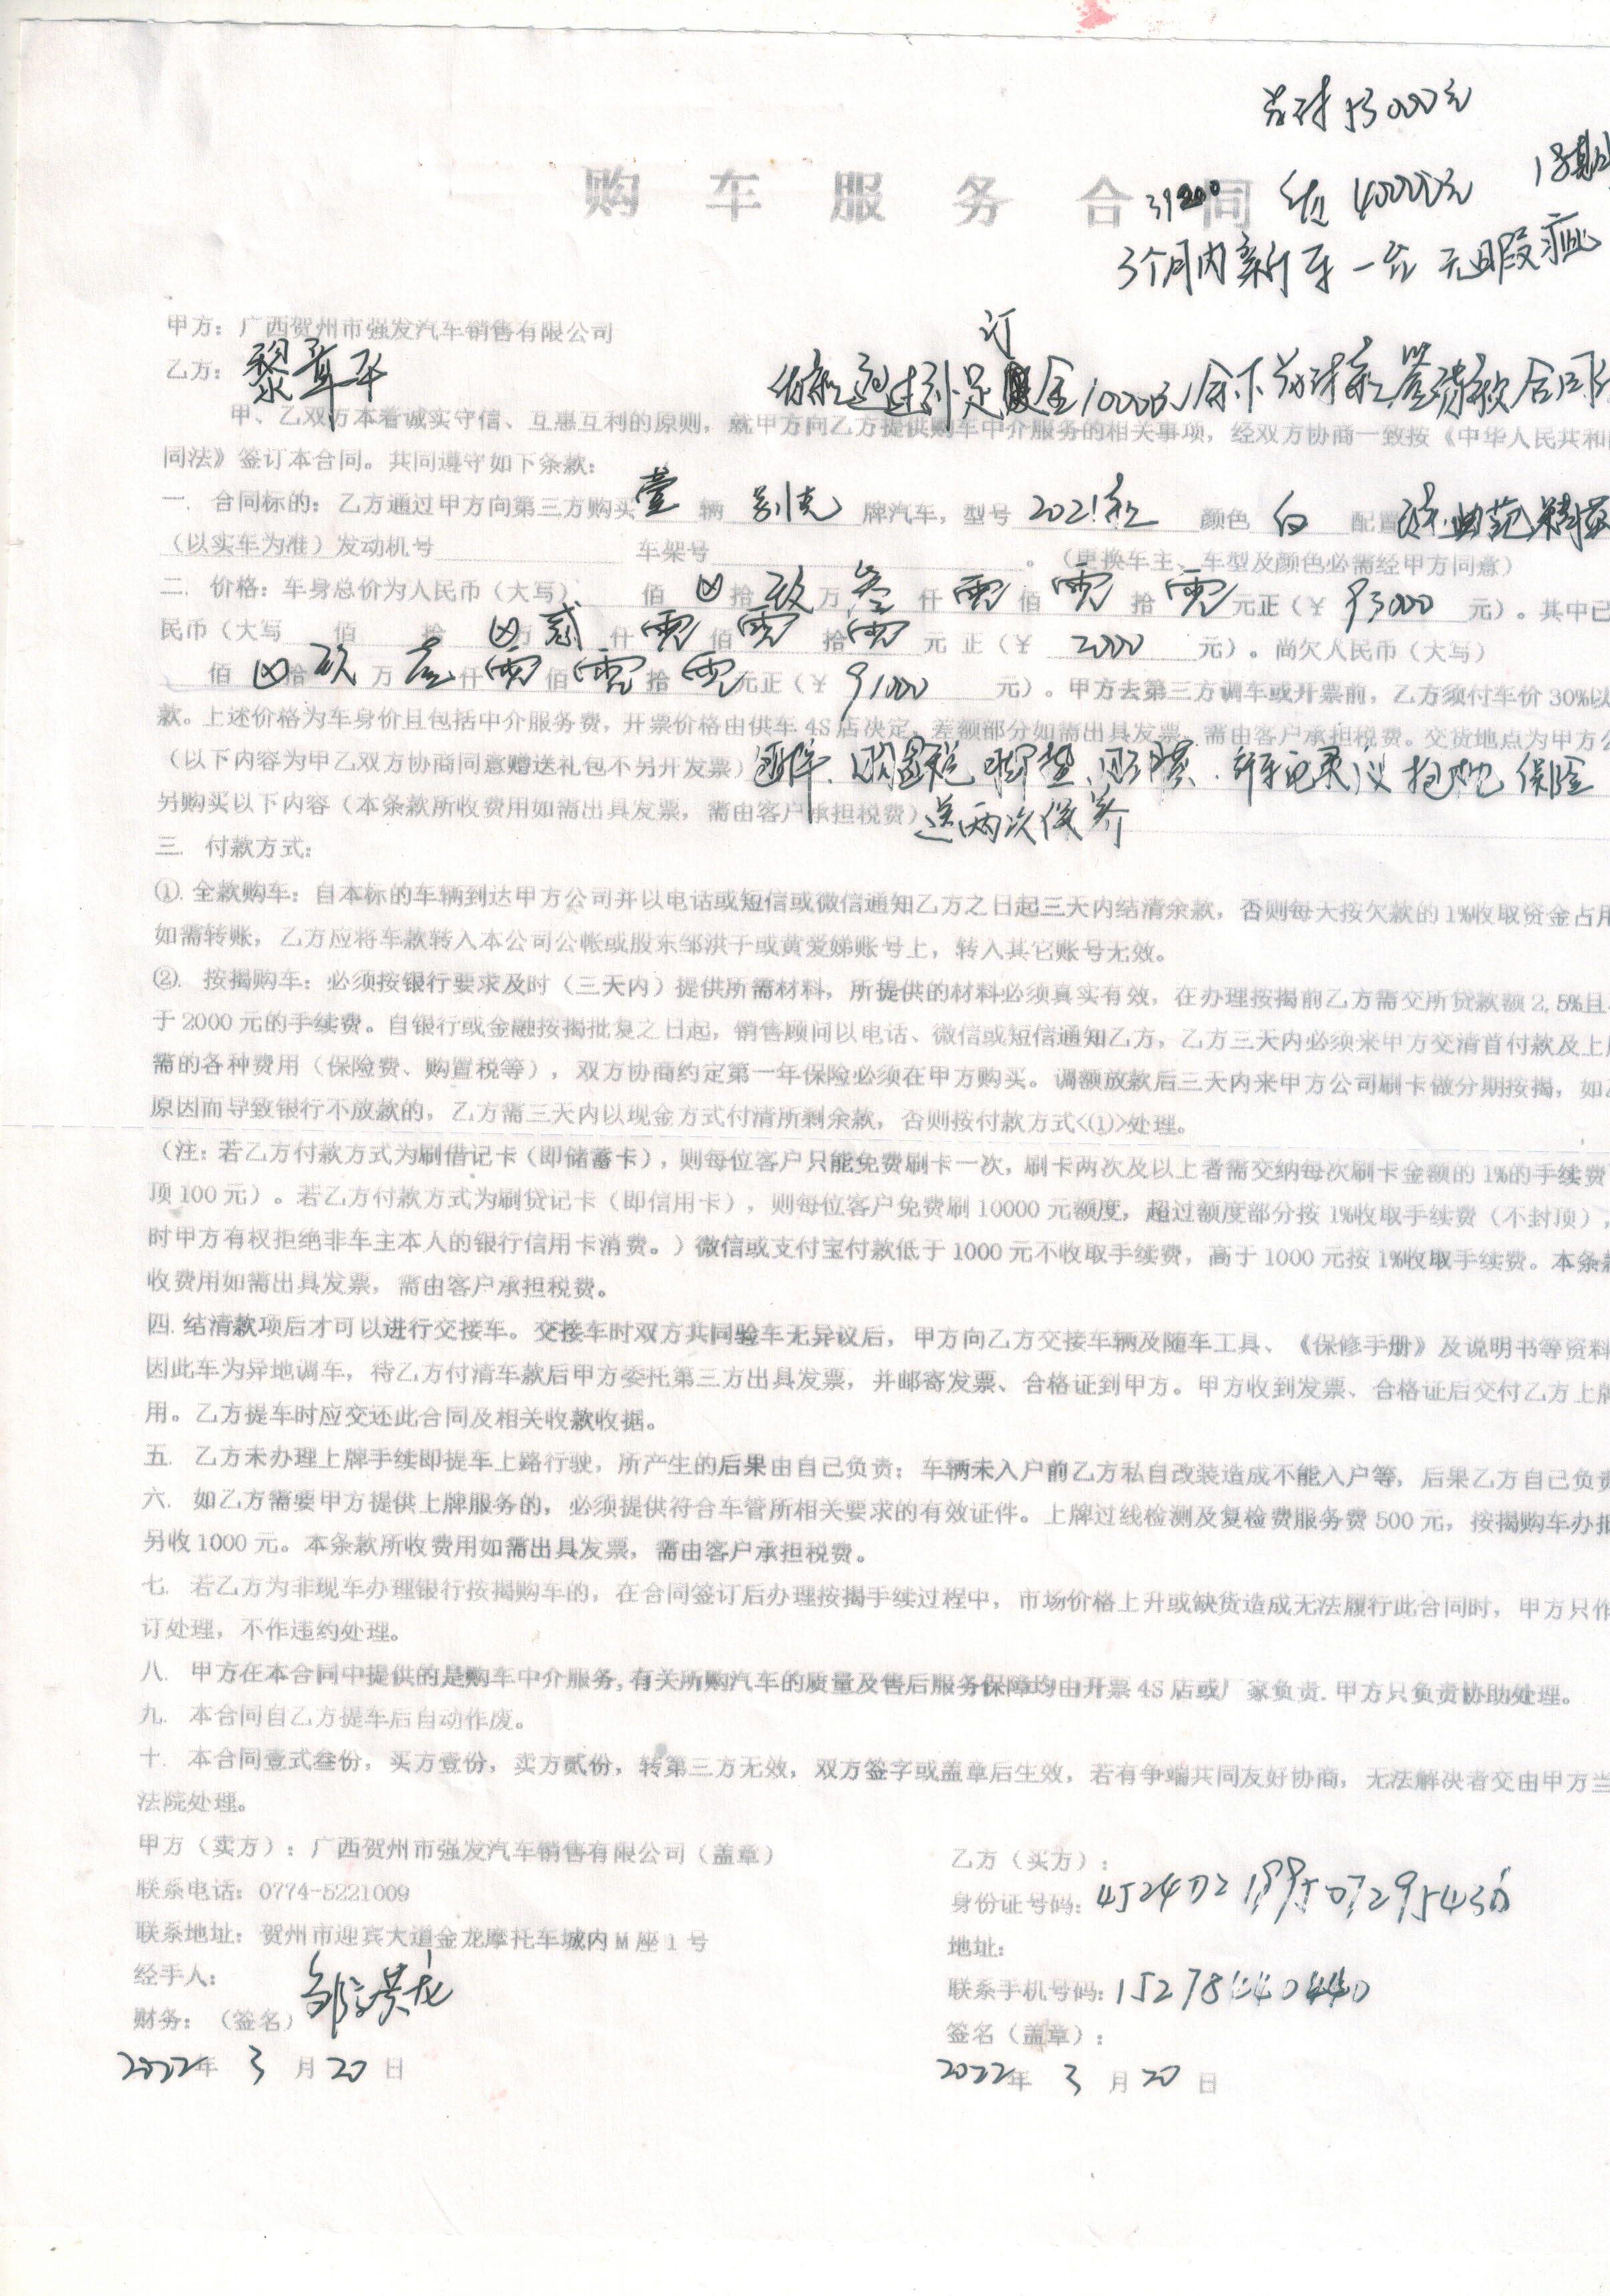 首付 53000元
购车服务合同 39200 贷 40000元 18期
3个月内新车一台 无瑕疵
甲方：广西贺州市强发汽车销售有限公司
订
乙方：黎章平 贷款通过补足 金10000元 余下首付款签贷款合同
甲、乙双方本着诚实守信、互惠互利的原则，就甲方向乙方提供购车中介服务的相关事项，经双方协商一致按《中华人民共和
同法》签订本合同。共同遵守如下条款：
一. 合同标的：乙方通过甲方向第三方购买 壹 辆 别克 牌汽车，型号 2021款 颜色 白 配置
（以实车为准）发动机号 车架号 。（更换车主、车型及颜色必需经甲方同意）
二. 价格：车身总价为人民币（大写） 佰 拾 玖 万 叁 仟 零 佰 零 拾 零 元正（¥ 93000 元）。其中已
民币（大写 佰 拾 万 贰 仟 零 佰 零 拾 零 元 正（¥ 2000 元）。尚欠人民币（大写）
佰 拾 玖 万 壹 仟 零 佰 零 拾 零 元正（¥ 91000 元）。甲方去第三方调车或开票前，乙方须付车价 30%以
款。上述价格为车身价且包括中介服务费，开票价格由供车 4S 店决定，差额部分如需出具发票，需由客户承担税费。交货地点为甲方公
（以下内容为甲乙双方协商同意赠送礼包不另开发票） 购置税 脚垫 保险
另购买以下内容（本条款所收费用如需出具发票，需由客户承担税费） 送两次保养
三. 付款方式：
①. 全款购车：自本标的车辆到达甲方公司并以电话或短信或微信通知乙方之日起三天内结清余款，否则每天按欠款的 1%收取资金占用
如需转账，乙方应将车款转入本公司公帐或股东邹洪干或黄爱娣账号上，转入其它账号无效。
②. 按揭购车：必须按银行要求及时（三天内）提供所需材料，所提供的材料必须真实有效，在办理按揭前乙方需交所贷款额 2.5%且
于 2000 元的手续费。自银行或金融按揭批复之日起，销售顾问以电话、微信或短信通知乙方，乙方三天内必须来甲方交清首付款及上
需的各种费用（保险费、购置税等），双方协商约定第一年保险必须在甲方购买。调额放款后三天内来甲方公司刷卡做分期按揭，如
原因而导致银行不放款的，乙方需三天内以现金方式付清所剩余款，否则按付款方式<(1)>处理。
（注：若乙方付款方式为刷借记卡（即储蓄卡），则每位客户只能免费刷卡一次，刷卡两次及以上者需交纳每次刷卡金额的 1%的手续费
顶 100 元）。若乙方付款方式为刷贷记卡（即信用卡），则每位客户免费刷 10000 元额度，超过额度部分按 1%收取手续费（不封顶），
时甲方有权拒绝非车主本人的银行信用卡消费。）微信或支付宝付款低于 1000 元不收取手续费，高于 1000 元按 1%收取手续费。本条款
收费用如需出具发票，需由客户承担税费。
四. 结清款项后才可以进行交接车。交接车时双方共同验车无异议后，甲方向乙方交接车辆及随车工具、《保修手册》及说明书等资料
因此车为异地调车，待乙方付清车款后甲方委托第三方出具发票，并邮寄发票、合格证到甲方。甲方收到发票、合格证后交付乙方上牌
用。乙方提车时应交还此合同及相关收款收据。
五. 乙方未办理上牌手续即提车上路行驶，所产生的后果由自己负责；车辆未入户前乙方私自改装造成不能入户等，后果乙方自己负责
六. 如乙方需要甲方提供上牌服务的，必须提供符合车管所相关要求的有效证件。上牌过线检测及复检费服务费 500 元，按揭购车办抵
另收 1000 元。本条款所收费用如需出具发票，需由客户承担税费。
七. 若乙方为非现车办理银行按揭购车的，在合同签订后办理按揭手续过程中，市场价格上升或缺货造成无法履行此合同时，甲方只作
订处理，不作违约处理。
八. 甲方在本合同中提供的是购车中介服务, 有关所购汽车的质量及售后服务保障均由开票 4S 店或厂家负责. 甲方只负责协助处理。
九. 本合同自乙方提车后自动作废。
十. 本合同壹式叁份，买方壹份，卖方贰份，转第三方无效，双方签字或盖章后生效，若有争端共同友好协商，无法解决者交由甲方当
法院处理。
甲方（卖方）：广西贺州市强发汽车销售有限公司（盖章）
乙方（买方）：
联系电话：0774-5221009
身份证号码：
联系地址：贺州市迎宾大道金龙摩托车城内 M 座 1 号
地址：
经手人：
联系手机号码：15278440440
财务：（签名）邹洪龙
签名（盖章）：
2022年 3 月 20 日
2022年 3 月 20 日